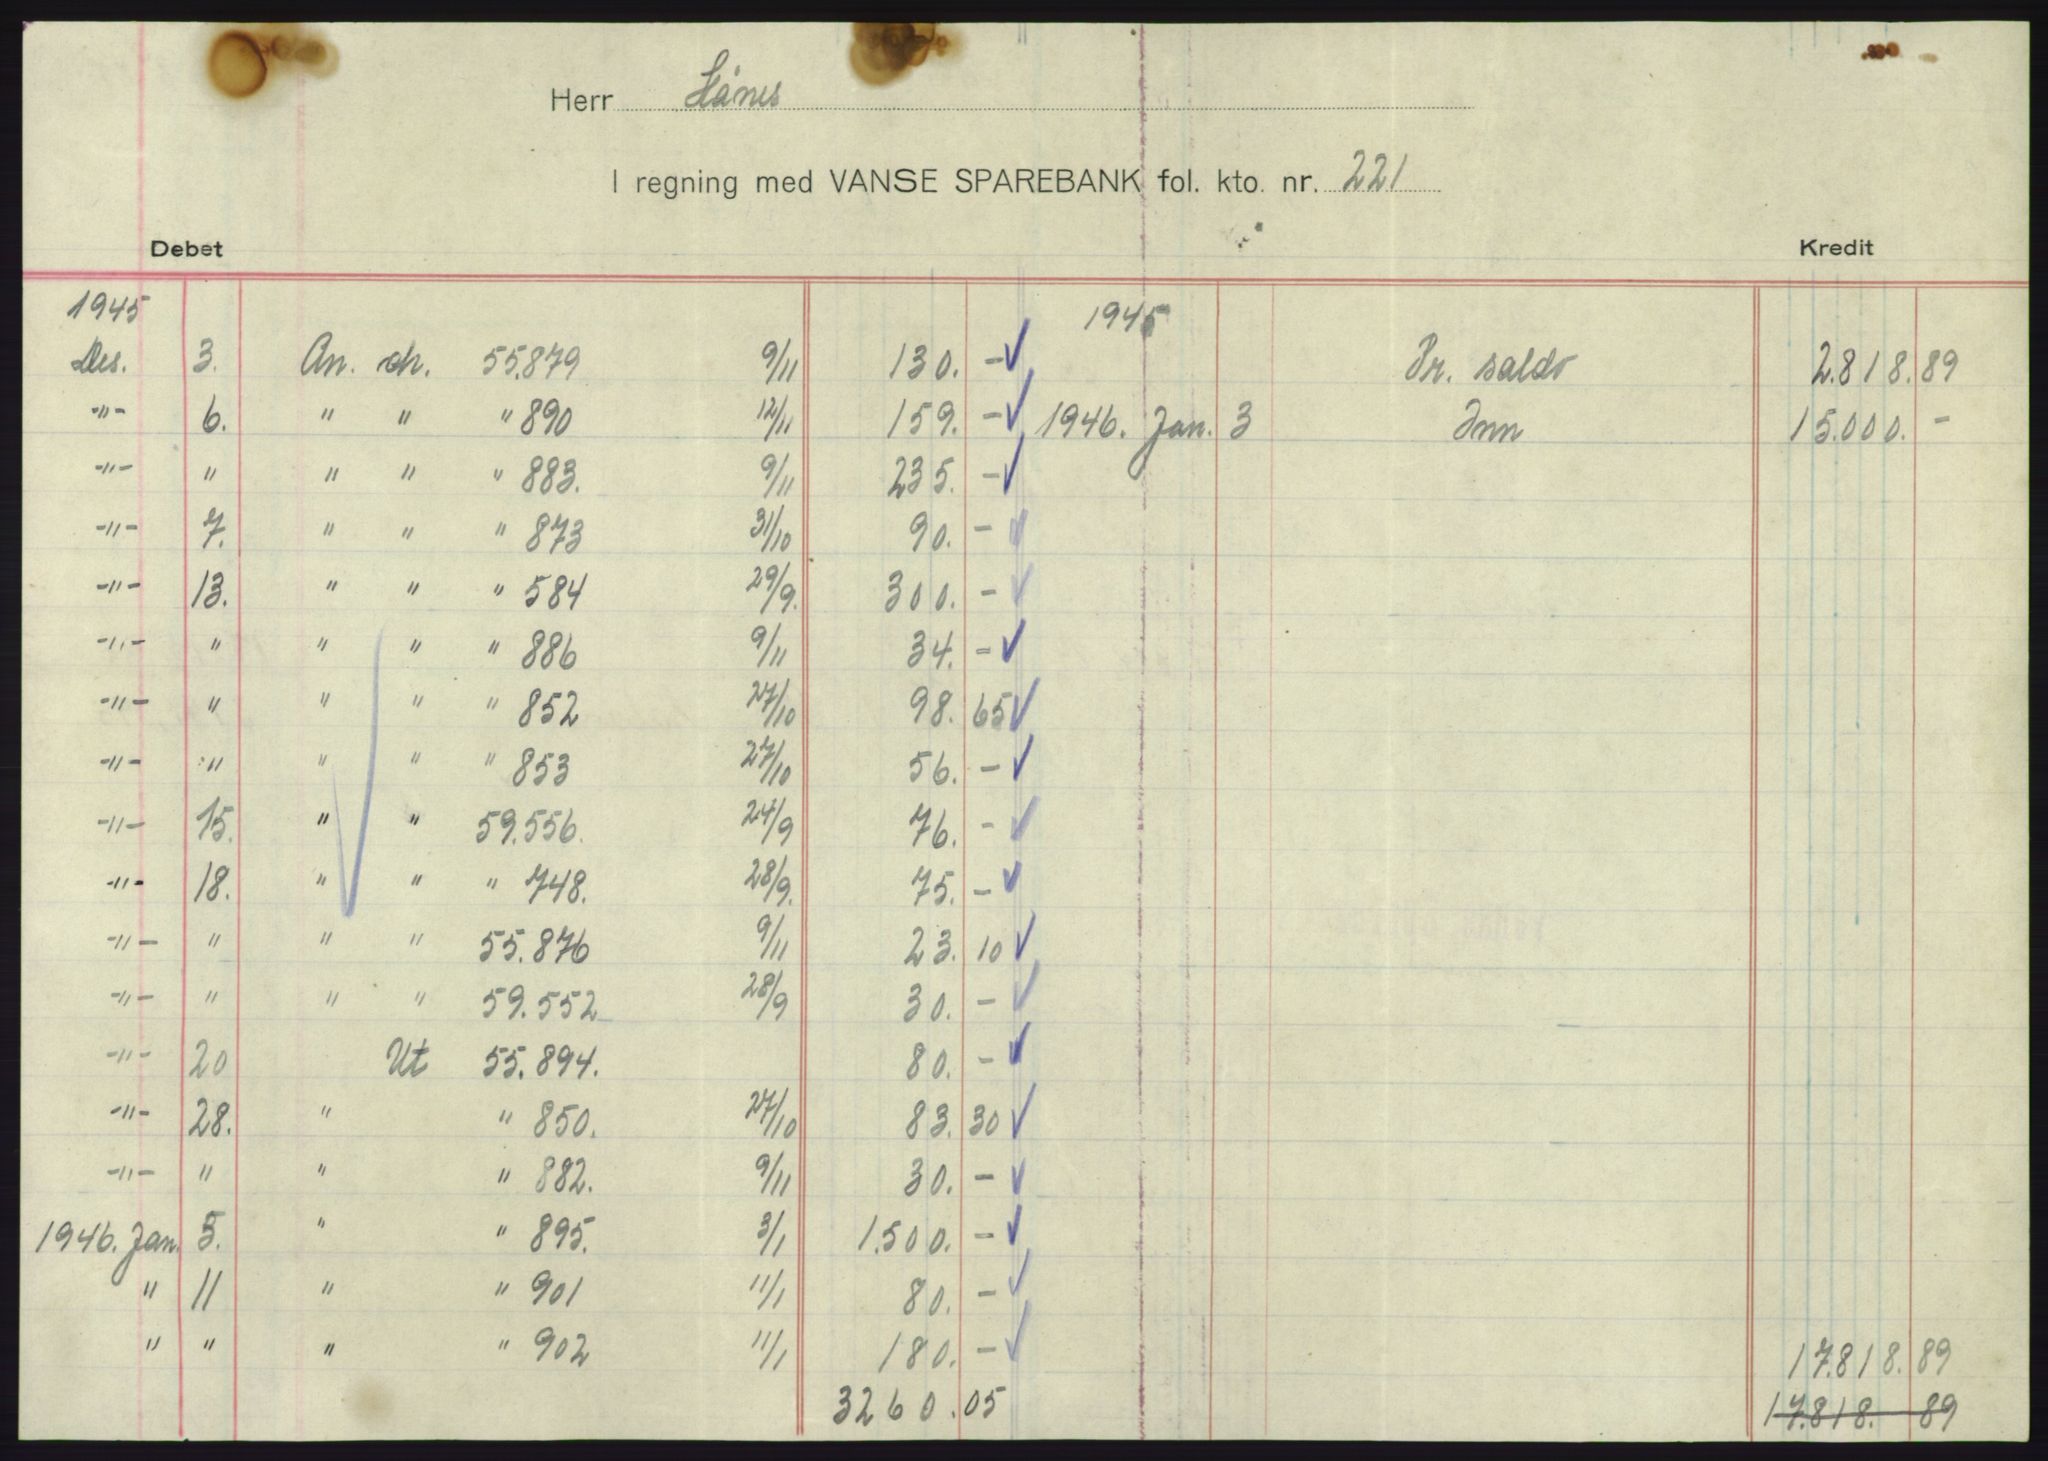 Herr Hånes
I regning med VANSE SPAREBANK fol. kto. nr. 221
Debet Kredit
1945 1945
Des. 3. An. ch. 55.879 9/11 130. - ✓ Pr. saldo 2.818.89
-"- 6. " " " 890 12/11 159. - ✓ 1946. Jan. 3 Inn 15.000. -
-"- " " " " 883. 9/11 235. - ✓
-"- 7. " " " 873 31/10 90. - ✓
-"- 13. " " " 584 29/9. 300. - ✓
-"- " " " " 886 9/11 34. - ✓
-"- " " " " 852 27/10 98. 65 ✓
-"- " " " " 853 27/10 56. - ✓
-"- 15. " " 59.556. 24/9 76. - ✓
-"- 18. " " " 748. 28/9. 75. - ✓
-"- " " " 55.876 9/11 23. 10 ✓
-"- " " " 59.552 28/9 30. - ✓
-"- 20 Ut 55.894. 80. - ✓
-"- 28. " " 850. 27/10 83. 30 ✓
-"- " " " 882. 9/11 30. - ✓
1946. Jan. 5. " " 895. 3/1 1.500. - ✓
" 11 " " 901 11/1 80. - ✓
" " " " 902 11/1 180. - ✓ 17.818.89
3260.05 17.818. 89